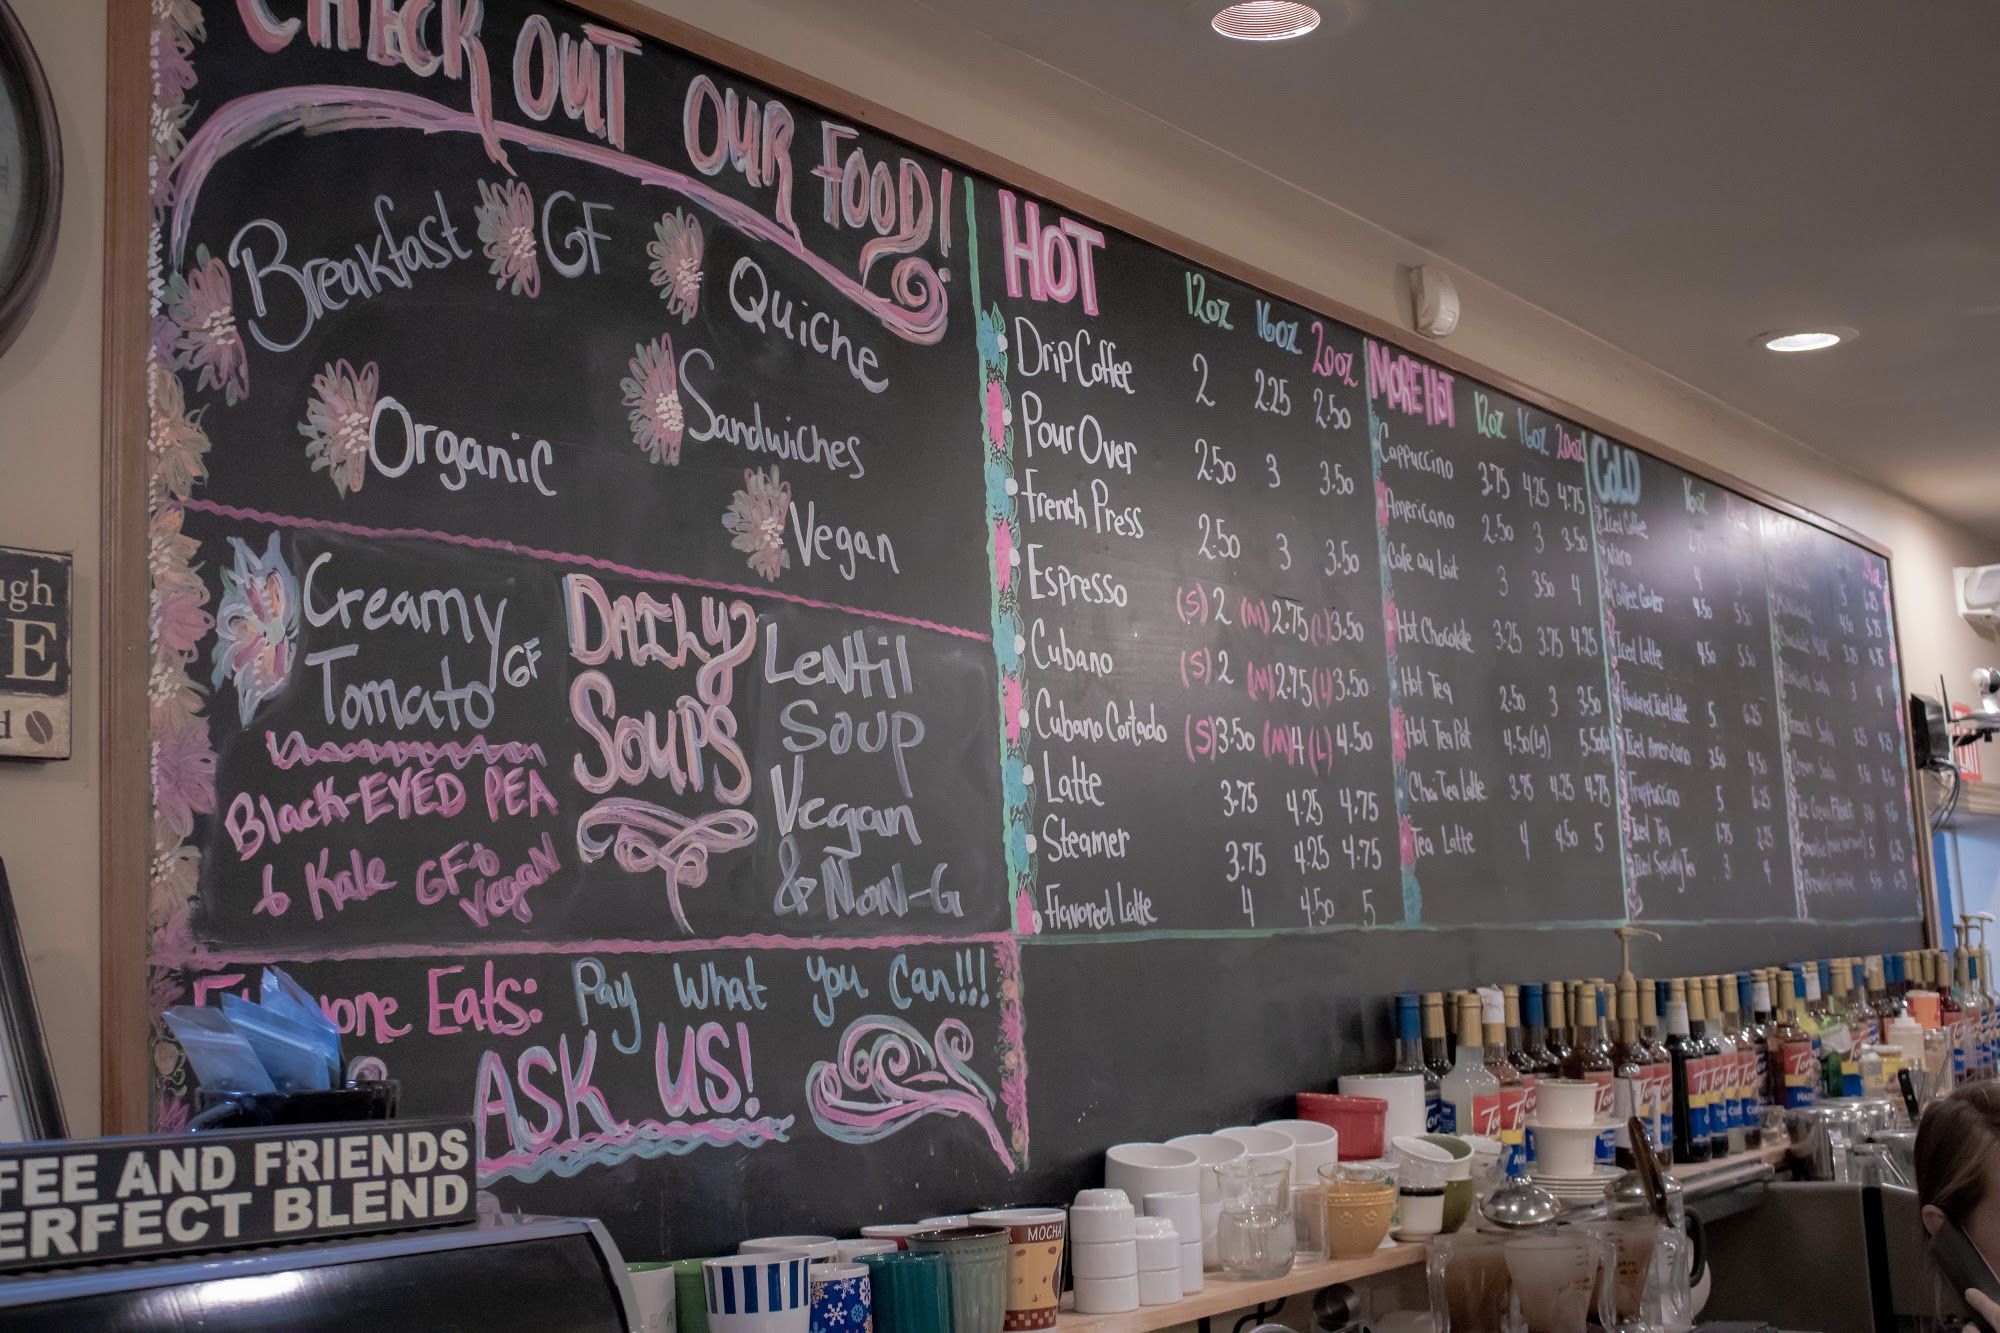 CHECK OUT OUR FOOD!
Breakfast
GF
Quiche
Organic
Sandwiches
Vegan
Creamy
Tomato GF
Black-EYED PEA
& Kale GF &
Vegan
DAILY
SOUPS
LENTIL
SOUP
Vegan
& NON-G
Eats: Pay What you Can!!!
ASK US!
HOT 12oz 16oz 20oz
Drip Coffee 2 2.25 2.50
Pour Over 2.50 3 3.50
French Press 2.50 3 3.50
Espresso (S) 2 (M) 2.75 (L) 3.50
Cubano (S) 2 (M) 2.75 (L) 3.50
Cubano Cortado (S) 3.50 (M) 4 (L) 4.50
Latte 3.75 4.25 4.75
Steamer 3.75 4.25 4.75
Flavored Latte 4 4.50 5
MORE HOT 12oz 16oz 20oz
Cappuccino 3.75 4.25 4.75
Americano 2.50 3 3.50
Cafe au Lait 3 3.50 4
Hot Chocolate 3.25 3.75 4.25
Hot Tea 2.50 3 3.50
Hot Tea Pot 4.50
Chai Tea Latte 3.75 4.25 4.75
Tea Latte 4 4.50 5
COLD 16oz
Iced Coffee
Nitro 4
Coffee Cooler 4.50 5.50
Iced Latte 4.50 5.50
Flavored Iced Latte 5 6.25
Iced Americano 3.50 4.50
Frappuccino 5 6.25
Iced Tea 1.75 2.25
Iced Specialty Tea 3 4
FEE AND FRIENDS
ERFECT BLEND
MOCHA
ugh
E
d